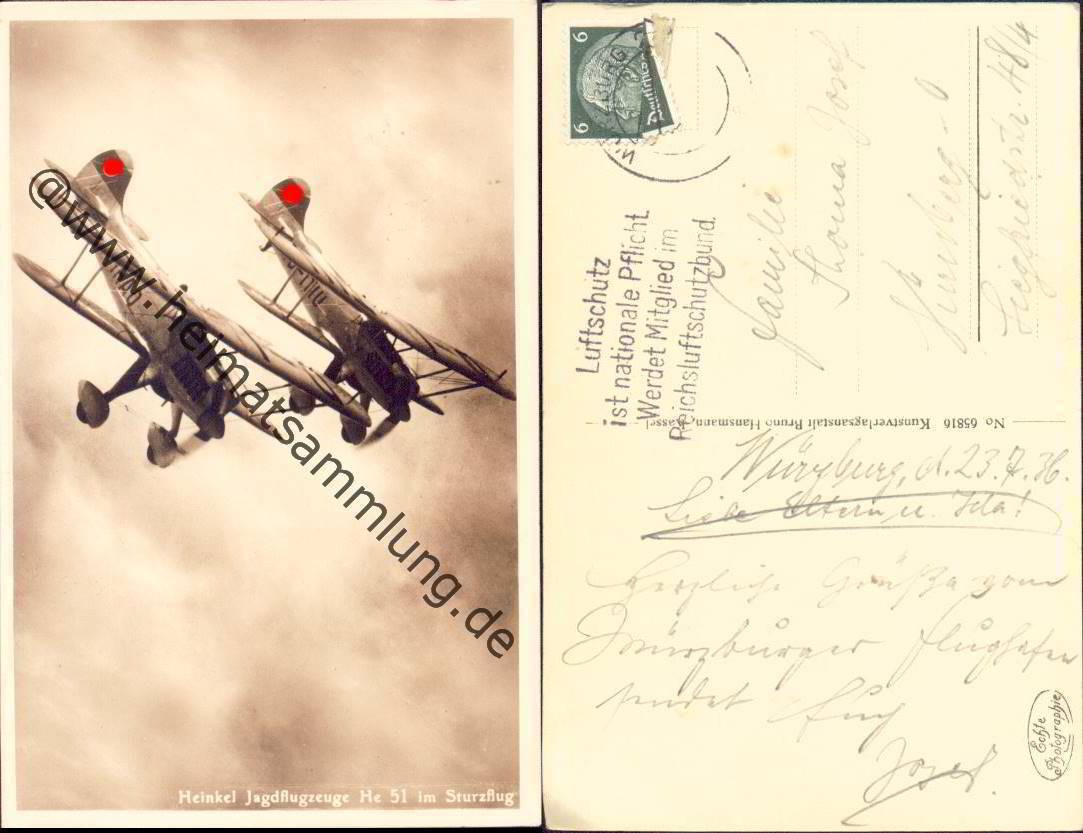 @www.heimatsammlung.de
Heinkel Jagdflugzeuge He 51 im Sturzflug
6 6
Deutsches
WÜRZBURG 2
Luftschutz
ist nationale Pflicht
Werdet Mitglied im
Reichsluftschutzbund.
Familie
Thoma Josef
Nürnberg-O
Siegfriedstr. 48/4
No 65816 Kunstverlagsanstalt Bruno Hansmann, Kassel
Würzburg, d. 23.7.36.
Liebe Eltern u. Ida!
Herzliche Grüße vom
Würzburger Flughafen
sendet Euch
Josef.
Echte
Photographie